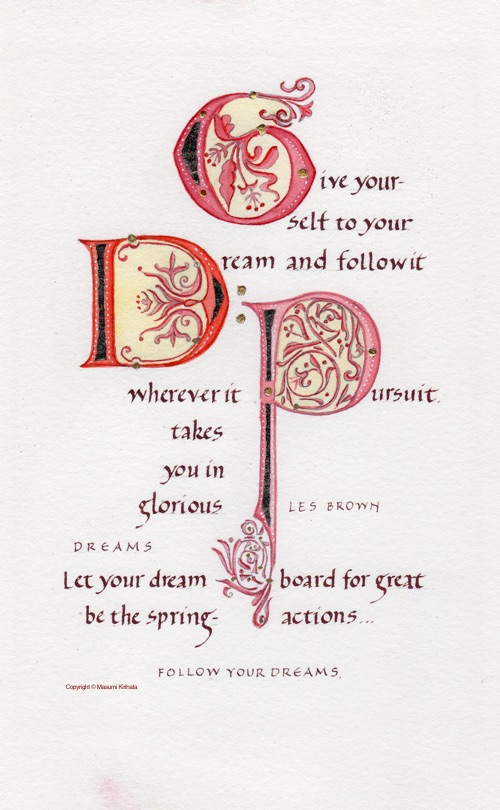 Give your-
self to your
Dream and follow it
wherever it
takes
you in
glorious
Pursuit.
LES BROWN
DREAMS
Let your dream
be the spring-
board for great
actions...
FOLLOW YOUR DREAMS.
Copyright © Masumi Kirihata